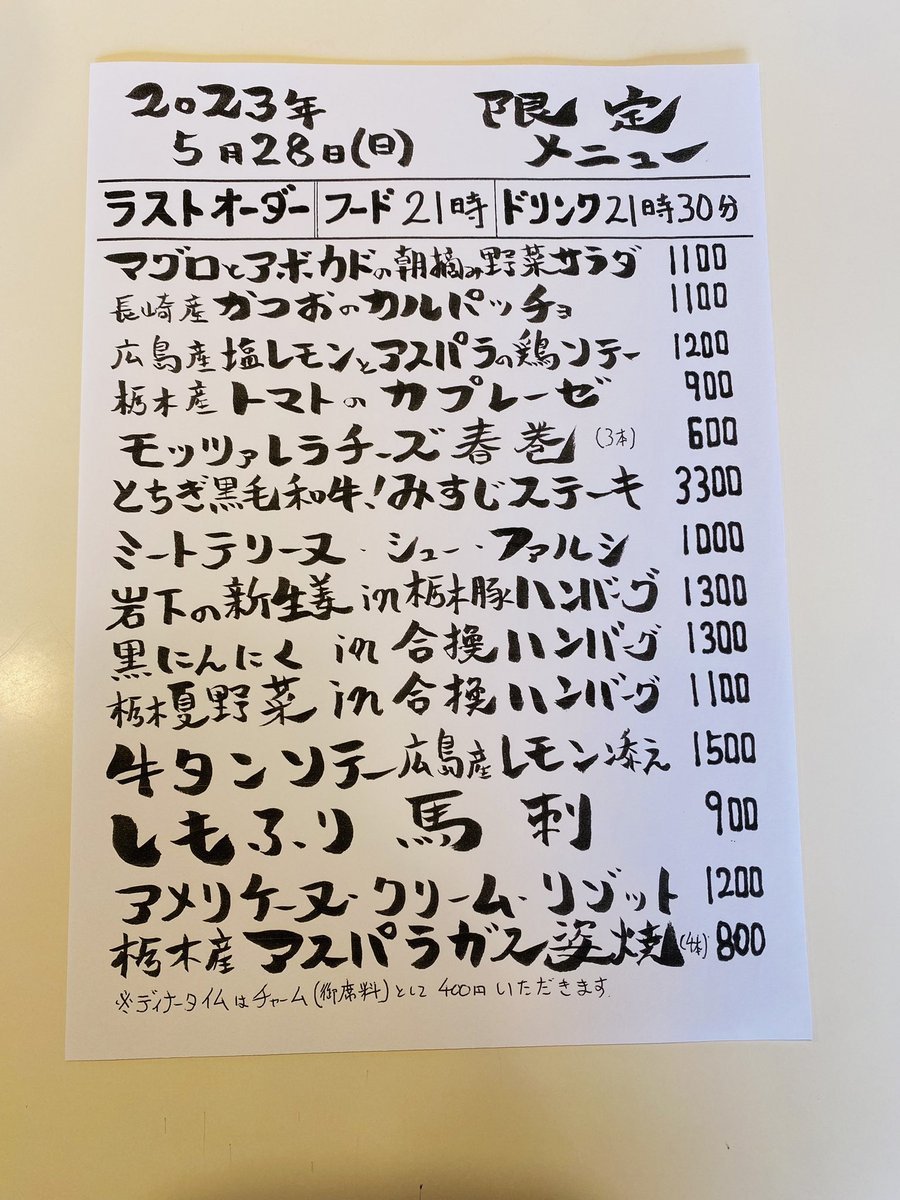 2023年 限定
5月28日(日) メニュー
ラストオーダー フード21時 ドリンク21時30分
マグロとアボカドの朝摘み野菜サラダ 1100
長崎産かつおのカルパッチョ 1100
広島産塩レモンとアスパラの鶏ソテー 1200
栃木産トマトのカプレーゼ 900
モッツァレラチーズ春巻(3本) 600
とちぎ黒毛和牛!みすじステーキ 3300
ミートテリーヌ・シュー・ファルシ 1000
岩下の新生姜in栃木豚ハンバーグ 1300
黒にんにく in 合挽ハンバーグ 1300
栃木夏野菜 in 合挽ハンバーグ 1100
牛タンソテー広島産レモン添え 1500
しもふり馬刺 900
アメリケーヌ・クリーム・リゾット 1200
栃木産アスパラガス姿焼(4本) 800
※ディナータイムはチャーム(御席料)として400円いただきます。